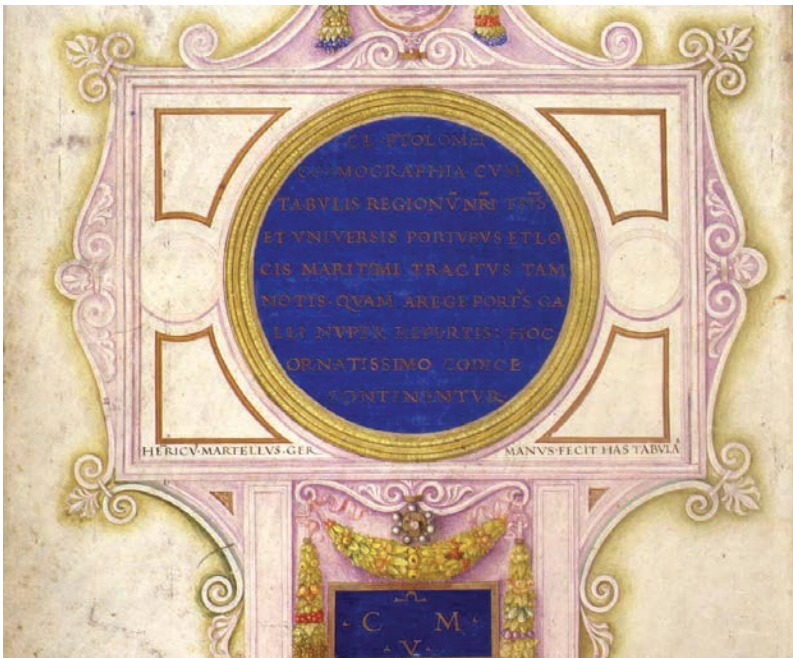 CL·PTOLOMEI
COSMOGRAPHIA CVM
TABVLIS REGIONV̄ NR̄I
ET VNIVERSIS PORTVBVS ET LO
CIS MARITIMI TRACTVS TAM
NOTIS·QVAM A REGE PORT̄S GA
LLI NVPER REPERTIS: HOC
ORNATISSIMO CODICE
CONTINENTVR
HERICV·MARTELLVS·GER MANVS·FECIT HAS TABVLĀ
C M
V